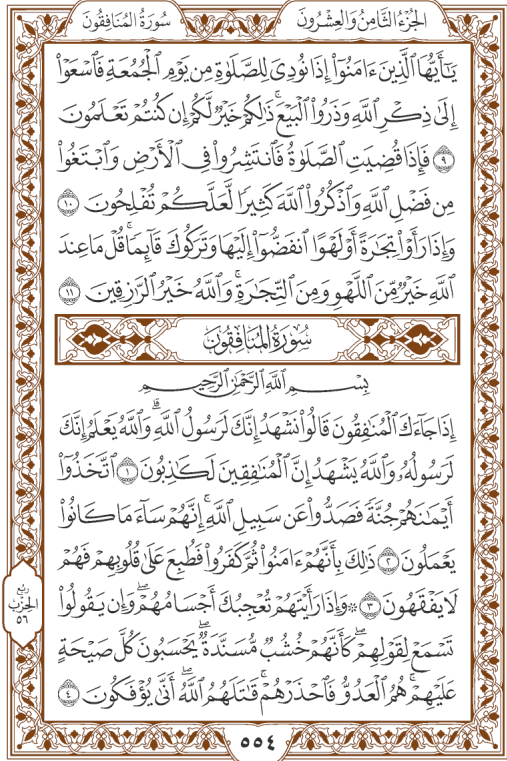 الجُزْءُ الثَّامِنُ وَالعِشْرُونَ
سُورَةُ المُنَافِقُونَ
يَـٰٓأَيُّهَا ٱلَّذِينَ ءَامَنُوٓا۟ إِذَا نُودِىَ لِلصَّلَوٰةِ مِن يَوْمِ ٱلْجُمُعَةِ فَٱسْعَوْا۟
إِلَىٰ ذِكْرِ ٱللَّهِ وَذَرُوا۟ ٱلْبَيْعَ ۚ ذَٰلِكُمْ خَيْرٌ لَّكُمْ إِن كُنتُمْ تَعْلَمُونَ
٩ فَإِذَا قُضِيَتِ ٱلصَّلَوٰةُ فَٱنتَشِرُوا۟ فِى ٱلْأَرْضِ وَٱبْتَغُوا۟
مِن فَضْلِ ٱللَّهِ وَٱذْكُرُوا۟ ٱللَّهَ كَثِيرًا لَّعَلَّكُمْ تُفْلِحُونَ ١٠
وَإِذَا رَأَوْا۟ تِجَـٰرَةً أَوْ لَهْوًا ٱنفَضُّوٓا۟ إِلَيْهَا وَتَرَكُوكَ قَآئِمًا ۚ قُلْ مَا عِندَ
ٱللَّهِ خَيْرٌ مِّنَ ٱللَّهْوِ وَمِنَ ٱلتِّجَـٰرَةِ ۚ وَٱللَّهُ خَيْرُ ٱلرَّٰزِقِينَ ١١
سُورَةُ المُنَافِقُونَ
بِسْمِ ٱللَّهِ ٱلرَّحْمَـٰنِ ٱلرَّحِيمِ
إِذَا جَآءَكَ ٱلْمُنَـٰفِقُونَ قَالُوا۟ نَشْهَدُ إِنَّكَ لَرَسُولُ ٱللَّهِ ۗ وَٱللَّهُ يَعْلَمُ إِنَّكَ
لَرَسُولُهُۥ وَٱللَّهُ يَشْهَدُ إِنَّ ٱلْمُنَـٰفِقِينَ لَكَـٰذِبُونَ ١ ٱتَّخَذُوٓا۟
أَيْمَـٰنَهُمْ جُنَّةً فَصَدُّوا۟ عَن سَبِيلِ ٱللَّهِ ۚ إِنَّهُمْ سَآءَ مَا كَانُوا۟
يَعْمَلُونَ ٢ ذَٰلِكَ بِأَنَّهُمْ ءَامَنُوا۟ ثُمَّ كَفَرُوا۟ فَطُبِعَ عَلَىٰ قُلُوبِهِمْ فَهُمْ
لَا يَفْقَهُونَ ٣ ۞ وَإِذَا رَأَيْتَهُمْ تُعْجِبُكَ أَجْسَامُهُمْ ۖ وَإِن يَقُولُوا۟
تَسْمَعْ لِقَوْلِهِمْ ۖ كَأَنَّهُمْ خُشُبٌ مُّسَنَّدَةٌ ۖ يَحْسَبُونَ كُلَّ صَيْحَةٍ
عَلَيْهِمْ ۚ هُمُ ٱلْعَدُوُّ فَٱحْذَرْهُمْ ۚ قَـٰتَلَهُمُ ٱللَّهُ ۖ أَنَّىٰ يُؤْفَكُونَ ٤
ربع
الحزب
٥٦
٥٥٤